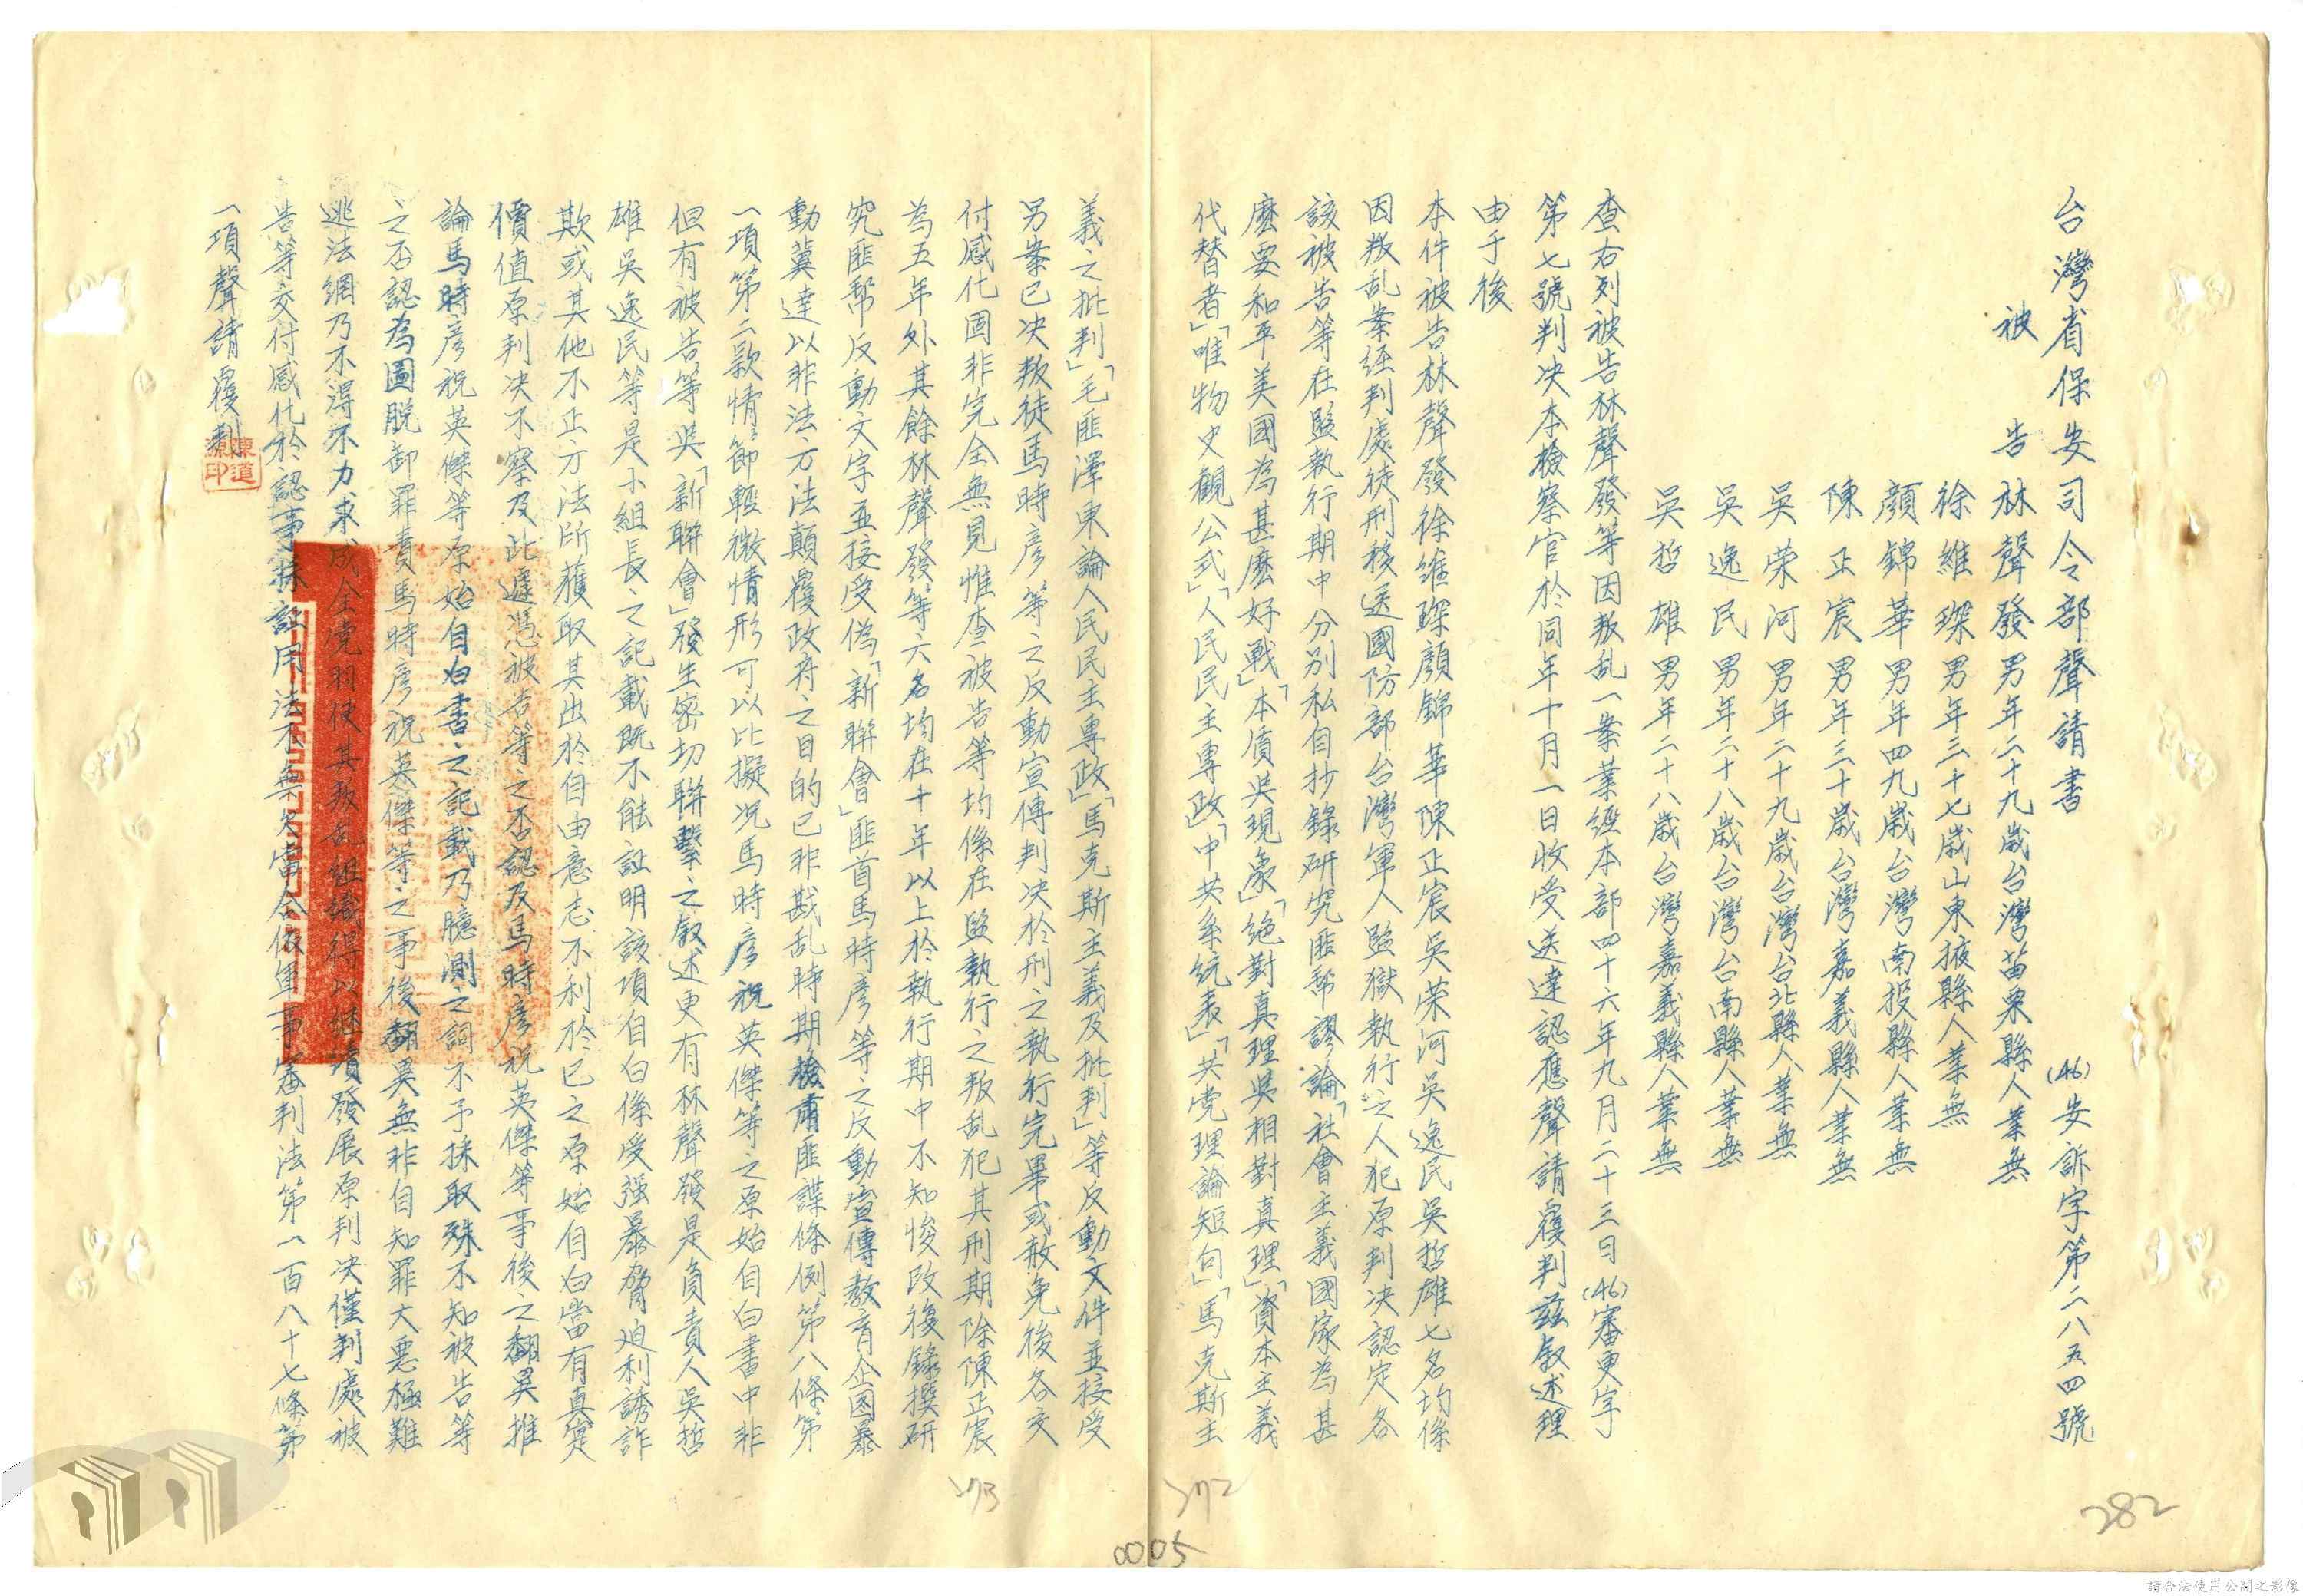 台灣省保安司令部聲請書
(46)安訴字第二八五四號
被告 林聲發 男年二十九歲台灣苗栗縣人業無
徐維琛 男年三十七歲山東掖縣人業無
顏錦華 男年四九歲台灣南投縣人業無
陳正宸 男年三十歲台灣嘉義縣人業無
吳荣河 男年二十九歲台灣台北縣人業無
吳逸民 男年二十八歲台灣台南縣人業無
吳哲雄 男年二十八歲台灣嘉義縣人業無
查右列被告林聲發等因叛乱一案業經本部四十六年九月二十三日(46)審更字
第七號判决本檢察官於同年十月一日收受送達認應聲請覆判茲叙述理
由于後
本件被告林聲發徐維琛顏錦華陳正宸吳荣河吳逸民吳哲雄七名均係
因叛乱案經判處徒刑移送國防部台灣軍人監獄執行之人犯原判决認定各
該被告等在監執行期中分别私自抄錄研究匪帮謬論「社會主義國家為甚
麽要和平美國為甚麽好戰」「本債吳現象」「絶對真理吳相對真理」「資本主義
代替者」「唯物史觀公式」「人民民主專政」「中共系統表」「共党理論短句」「馬克斯主
義之批判」「毛匪澤東論人民民主專政」「馬克斯主義及批判」等反動文件並接受
另案已决叛徒馬時彦等之反動宣傳判决於刑之執行完畢或赦免後各交
付感化固非完全無見惟查被告等均係在監執行之叛乱犯其刑期除陳正宸
為五年外其餘林聲發等六名均在十年以上於執行期中不知悛改復錄撰研
究匪帮反動文字並接受偽「新聯會」匪首馬時彦等之反動宣傳教育企圖暴
動冀達以非法方法顛覆政府之目的已非戡乱時期檢肅匪諜條例第八條第
一項第二款情節輕微情形可以比擬况馬時彦祝英傑等之原始自白書中非
但有被告等吳「新聯會」發生密切聯繫之叙述更有林聲發是負責人吳哲
雄吳逸民等是小組長之記載既不能証明該項自白係受强暴脅迫利誘詐
欺或其他不正方法所獲取其出於自由意志不利於已之原始自白當有真寔
價值原判决不察及此遽憑被告等之否認及馬時彦祝英傑等事後之翻異推
論馬時彦祝英傑等原始自白書之記載乃臆測之詞不予採取殊不知被告等
之否認為圖脱卸罪責馬時彦祝英傑等之事後翻異無非自知罪大惡極難
逃法網乃不得不力求成全党羽使其叛乱組織得以继續發展原判决僅判處被
告等交付感化於認事採証用法不無欠當合依軍事審判法第一百八十七條第
一項聲請覆判
陳道源印
282
372
373
0005
請合法使用公開之影像